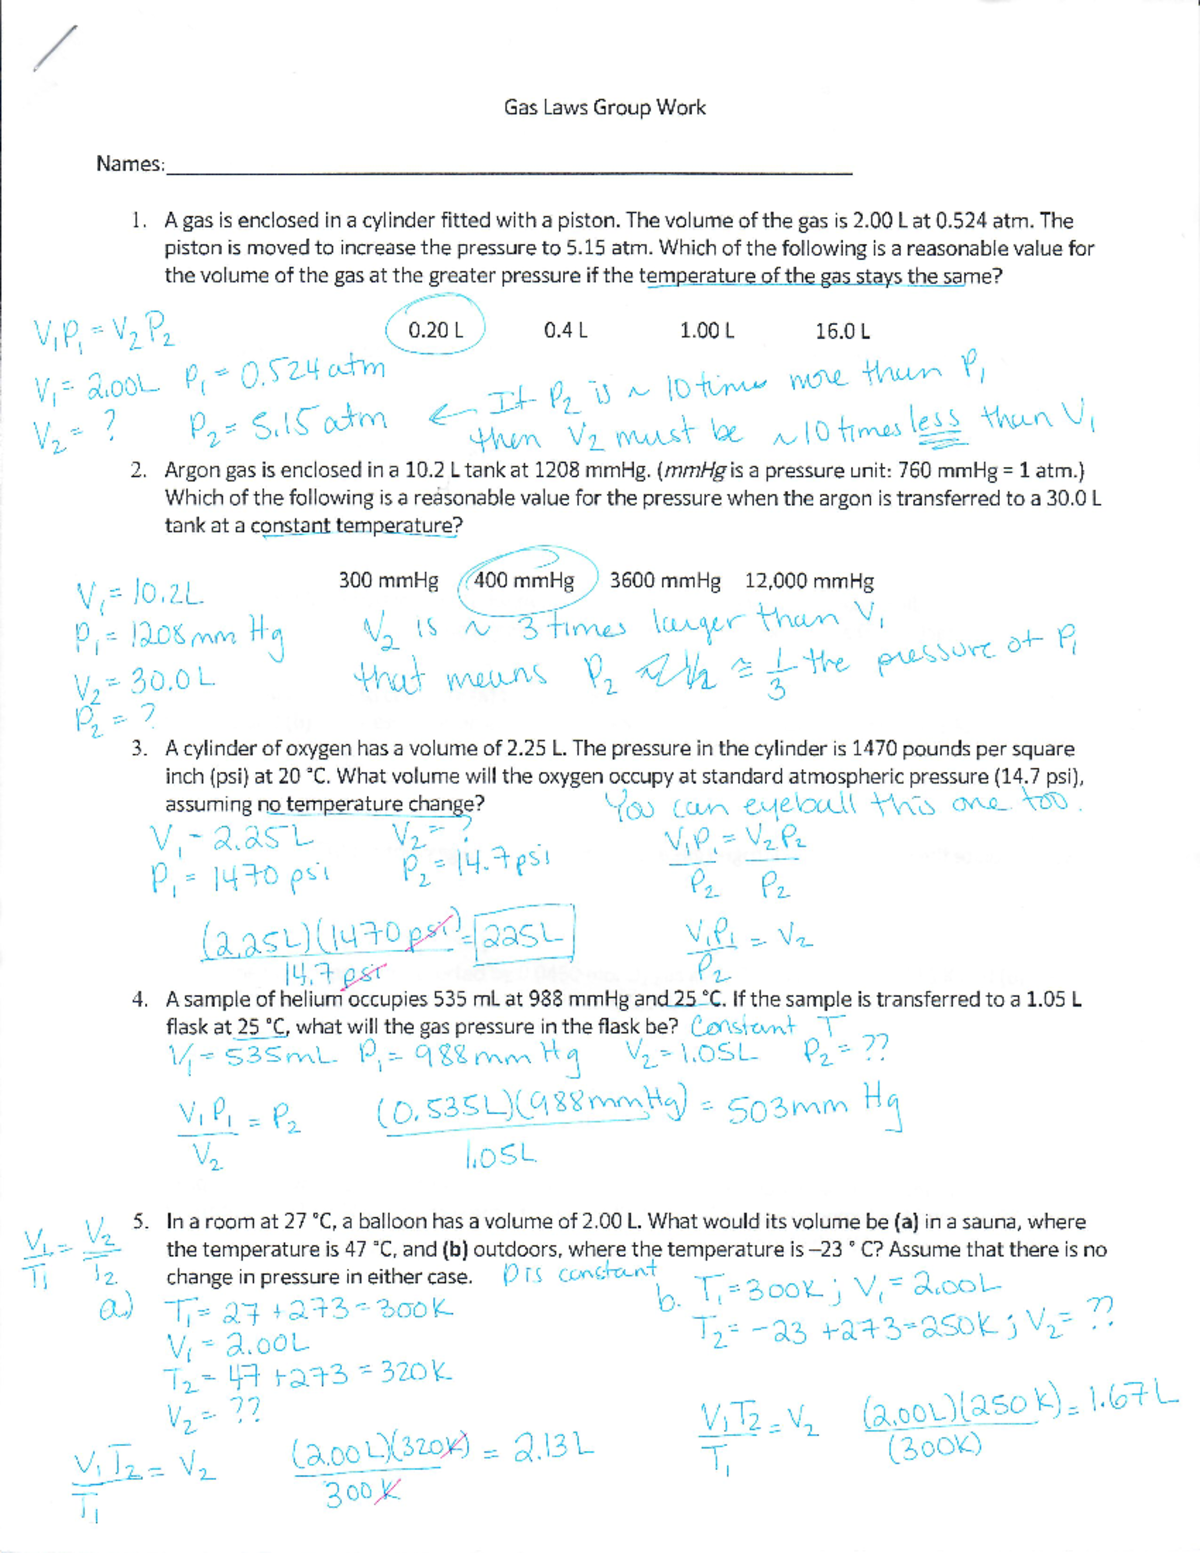 Gas Laws Group Work
Names:
1. A gas is enclosed in a cylinder fitted with a piston. The volume of the gas is 2.00 L at 0.524 atm. The
piston is moved to increase the pressure to 5.15 atm. Which of the following is a reasonable value for
the volume of the gas at the greater pressure if the temperature of the gas stays the same?
V₁P₁ = V₂P₂
0.20 L 0.4 L 1.00 L 16.0 L
V₁ = 2.00L P₁ = 0.524 atm
V₂ = ? P₂ = 5.15 atm
← If P₂ is ~ 10 times more than P₁
then V₂ must be ~10 times less than V₁
2. Argon gas is enclosed in a 10.2 L tank at 1208 mmHg. (mmHg is a pressure unit: 760 mmHg = 1 atm.)
Which of the following is a reasonable value for the pressure when the argon is transferred to a 30.0 L
tank at a constant temperature?
300 mmHg 400 mmHg 3600 mmHg 12,000 mmHg
V₁ = 10.2L
P₁ = 1208 mm Hg
V₂ = 30.0 L
P₂ = ?
V₂ is ~ 3 times larger than V₁
that means P₂ ≅ 1/3 the pressure of P₁
3. A cylinder of oxygen has a volume of 2.25 L. The pressure in the cylinder is 1470 pounds per square
inch (psi) at 20 °C. What volume will the oxygen occupy at standard atmospheric pressure (14.7 psi),
assuming no temperature change? You can eyeball this one too.
V₁ = 2.25 L V₂ = ?
P₁ = 1470 psi P₂ = 14.7 psi
(2.25L)(1470 psi) = 225L
14.7 psi
V₁P₁ = V₂P₂
P₂ P₂
V₁P₁ = V₂
P₂
4. A sample of helium occupies 535 mL at 988 mmHg and 25 °C. If the sample is transferred to a 1.05 L
flask at 25 °C, what will the gas pressure in the flask be? Constant T
V₁ = 535mL P₁ = 988 mm Hg V₂ = 1.05L P₂ = ??
V₁P₁ = P₂ (0.535L)(988mmHg) = 503mm Hg
V₂ 1.05L
5. In a room at 27 °C, a balloon has a volume of 2.00 L. What would its volume be (a) in a sauna, where
the temperature is 47 °C, and (b) outdoors, where the temperature is –23 ° C? Assume that there is no
change in pressure in either case. P is constant
V₁ = V₂
T₁ T₂
a) T₁ = 27 + 273 = 300K
V₁ = 2.00L
T₂ = 47 + 273 = 320K
V₂ = ??
V₁T₂ = V₂ (2.00L)(320K) = 2.13L
T₁ 300K
b. T₁ = 300K ; V₁ = 2.00L
T₂ = -23 + 273 = 250K ; V₂ = ??
V₁T₂ = V₂ (2.00L)(250K) = 1.67L
T₁ (300K)